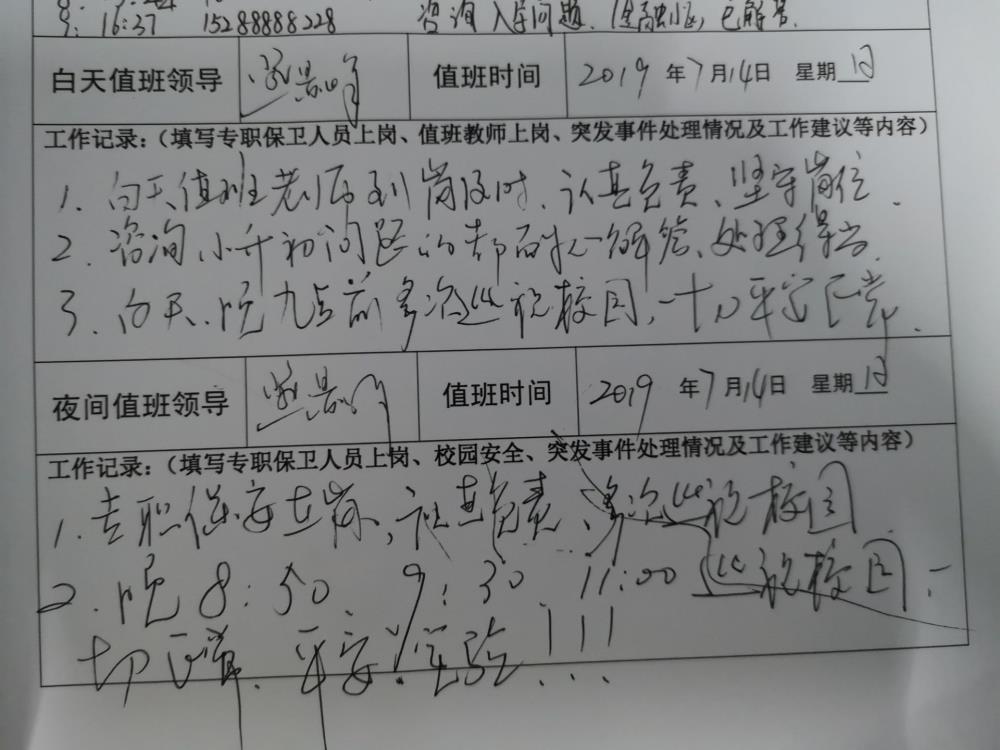 16:37 15288888228 咨询入学问题. 已解答.
白天值班领导 值班时间 2019年7月14日 星期日
工作记录:(填写专职保卫人员上岗、值班教师上岗、突发事件处理情况及工作建议等内容)
1. 白天值班老师到岗及时、认真负责、坚守岗位.
2. 咨询小升初问题的都耐心解答、处理得当.
3. 白天、晚九点前多次巡视校园,一切平安正常.
夜间值班领导 值班时间 2019年7月14日 星期日
工作记录:(填写专职保卫人员上岗、校园安全、突发事件处理情况及工作建议等内容)
1. 专职保安在岗、认真负责、多次巡视校园
2. 晚8:50、9:30、11:00巡视校园.一
切正常、平安!!!